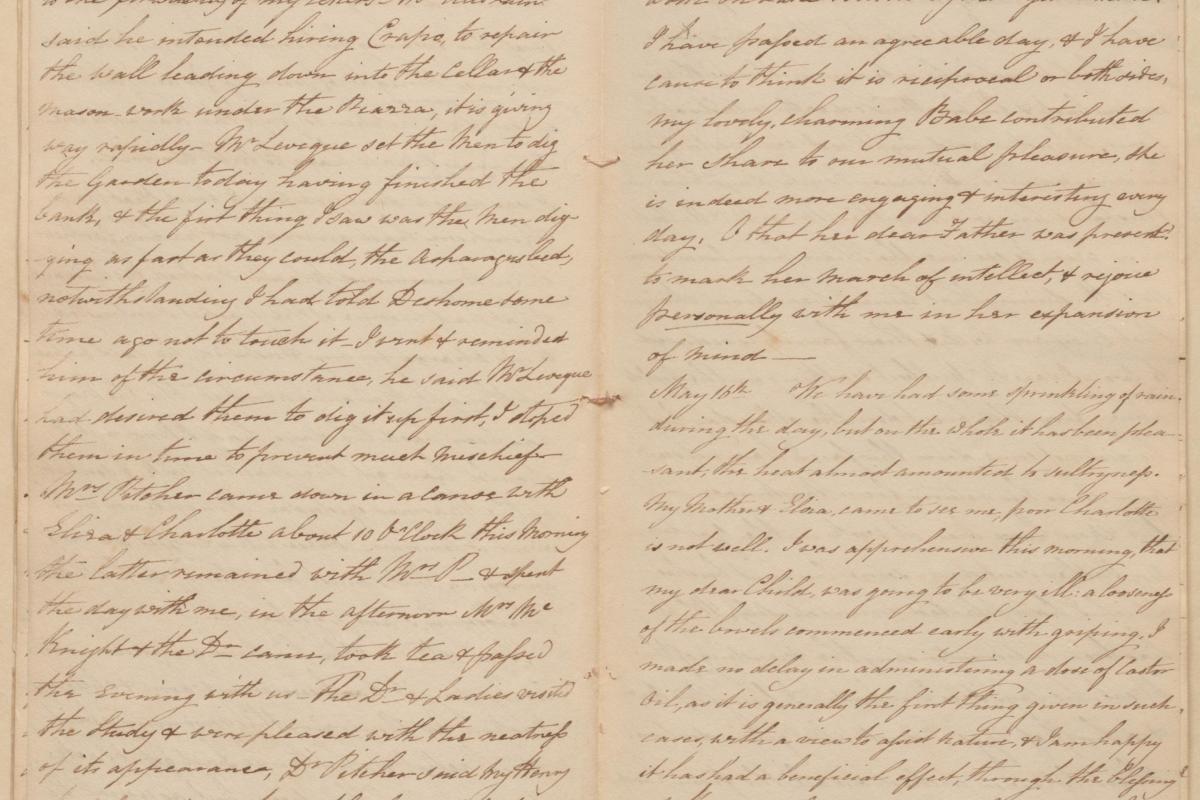 said he intended hiring Crapo, to repair
the wall leading down into the Cellar & the
mason-work under the Piazza, it is giving
way rapidly- Mr Leveque set the Men to dig
the Garden today having finished the
bank, & the first thing I saw was the Men dig-
ging as fast as they could, the Asparagus bed,
notwithstanding I had told Deshome some
time ago not to touch it - I went & reminded
him of the circumstance, he said Mr Leveque
had desired them to dig it up first, I stoped
them in time to prevent much mischief-
Mrs Pitcher came down in a canoe with
Eliza & Charlotte about 10 O'Clock this Morning
the latter remained with Mrs P- & spent
the day with me, in the afternoon Mrs Mc
Knight & the Dr came, took tea & passed
the Evening with us - The Dr & Ladies visited
the Study & were pleased with the neatness
of its appearance, Dr Pitcher said my Henry
I have passed an agreeable day, & I have
cause to think it is riciprocal on both sides,
my lovely, charming Babe contributed
her share to our mutual pleasure, she
is indeed more engaging & interesting every
day, O that her dear Father was present
to mark her march of intellect, & rejoice
personally with me in her expansion
of mind —
May 16th We have had some sprinkling of rain
during the day, but on the whole it has been plea-
sant, the heat almost amounted to sultryness.
My Mother & Eliza, came to see me, poor Charlotte
is not well. I was apprehensive this morning, that
my dear Child, was going to be very ill: a looseness
of the bowels commenced early with griping, I
made no delay in administering a dose of Castor
Oil, as it is generally the first thing given in such
cases, with a view to assist nature, & I am happy
it has had a beneficial effect, through the blessing